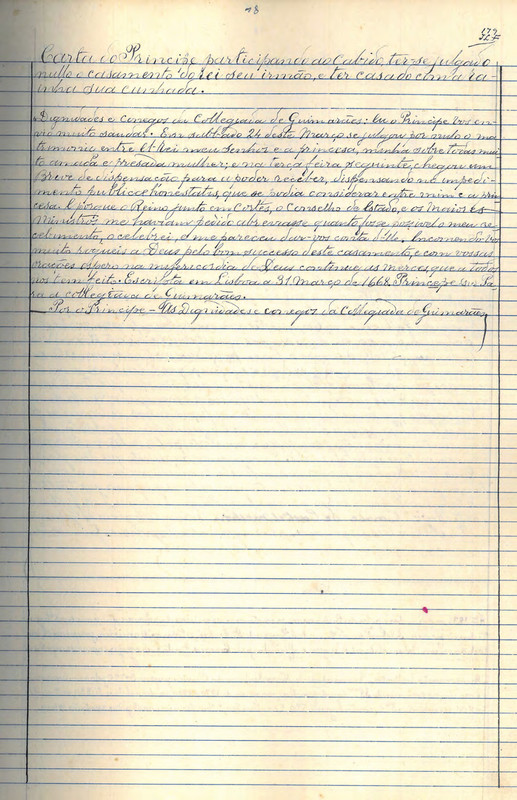 78
Carta do Principe participando ao Cabido ter-se julgado
nullo o casamento do rei seu irmão, e ter casado com a ra-
inha sua cunhada.
Dignidades e conegos da Collegiada de Guimarães: Eu o Principe vos en-
vio muito saudar. Em sabbado 24 deste Março se julgou por nullo o ma-
trimonio entre El-Rei meu senhor e a princesa, minha sobre todas mui-
to amada e prezada mulher; e na terça feira seguinte, chegou um
Breve de dispensação para a poder receber, dispensando no impedi-
mento publicæ honestatis, que se podia considerar entre mim e a prin-
cesa. E porque o Reino junto em Côrtes, o Conselho de Estado, e os maiores
Ministros me haviam pedido abreviasse quanto fosse possivel o meu re-
cebimento, o celebrei, e me pareceu dar-vos conta d'elle. Encomendo-vos
muito rogueis a Deus pelo bom successo deste casamento, e com vossas
orações espero na misericordia de Deus continue as mercês, que a todos
nos tem feito. Escripta em Lisboa a 31 Março de 1668. Principe. Pa-
ra a collegiada de Guimarães.
Por o Principe - Ás Dignidades e conegos da Collegiada de Guimarães